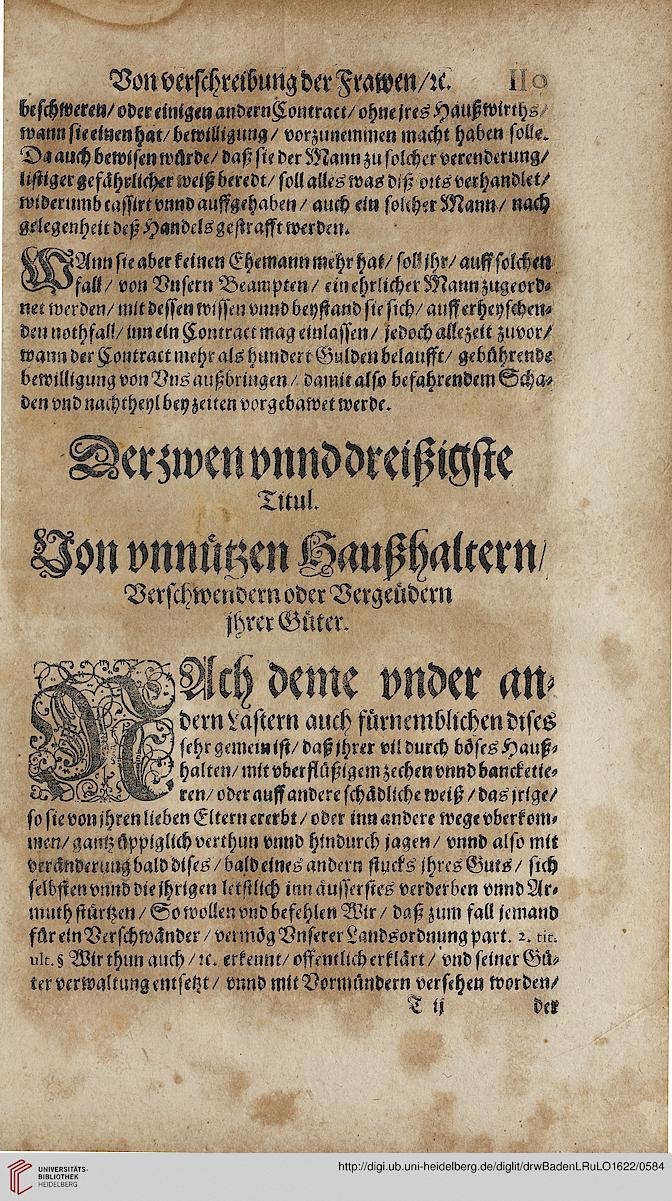 Von verschreibung der Frawen/ꝛc. 110
beschweren/ oder einigen andern Contract/ ohne jres Haußwirths/
wann sie einen hat/ bewilligung/ vorzunemmen macht haben solle.
Da auch bewisen würde/ daß sie der Mann zu solcher verenderung/
listiger gefährlicher weiß beredt/ soll alles was diß orts verhandlet/
widerumb cassirt vnnd auffgehaben/ auch ein solcher Mann/ nach
gelegenheit deß Handels gestrafft werden.
WAnn sie aber keinen Ehemann mehr hat/ soll jhr/ auff solchen
fall/ von Vnsern Beampten/ ein ehrlicher Mann zugeord⸗
net werden/ mit dessen wissen vnnd beystand sie sich/ auff erheyschen⸗
den nothfall/ inn ein Contract mag einlassen/ jedoch allezeit zuvor/
wann der Contract mehr als hundert Gulden belaufft/ gebührende
bewilligung von Vns außbringen/ damit also befahrendem Scha⸗
den vnd nachtheyl bey zeiten vorgebawet werde.
Der zwen vnnd dreißigste
Titul.
Von vnnützen Haußhaltern/
Verschwendern oder Vergeüdern
jhrer Güter.
NAch deme vnder an⸗
dern Lastern auch fürnemblichen dises
sehr gemein ist/ daß jhrer vil durch böses Hauß⸗
halten/ mit vberflüßigem zechen vnnd bancketie⸗
ren/ oder auff andere schädliche weiß/ das jrige/
so sie von jhren lieben Eltern ererbt/ oder inn andere wege vberkom⸗
men/ gantz üppiglich verthun vnnd hindurch jagen/ vnnd also mit
veränderung bald dises/ bald eines andern stucks jhres Guts/ sich
selbsten vnnd die jhrigen letstlich inn äusserstes verderben vnnd Ar⸗
muth stürtzen/ So wollen vnd befehlen Wir/ daß zum fall jemand
für ein Verschwänder/ vermög Vnserer Landsordnung part. 2. tit.
ult. § Wir thun auch/ ꝛc. erkennt/ offentlich erklärt/ vnd seiner Gü⸗
ter verwaltung entsetzt/ vnnd mit Vormündern versehen worden/
T ij der
UNIVERSITÄTS-
BIBLIOTHEK
HEIDELBERG
http://digi.ub.uni-heidelberg.de/diglit/drwBadenLRuLO1622/0584